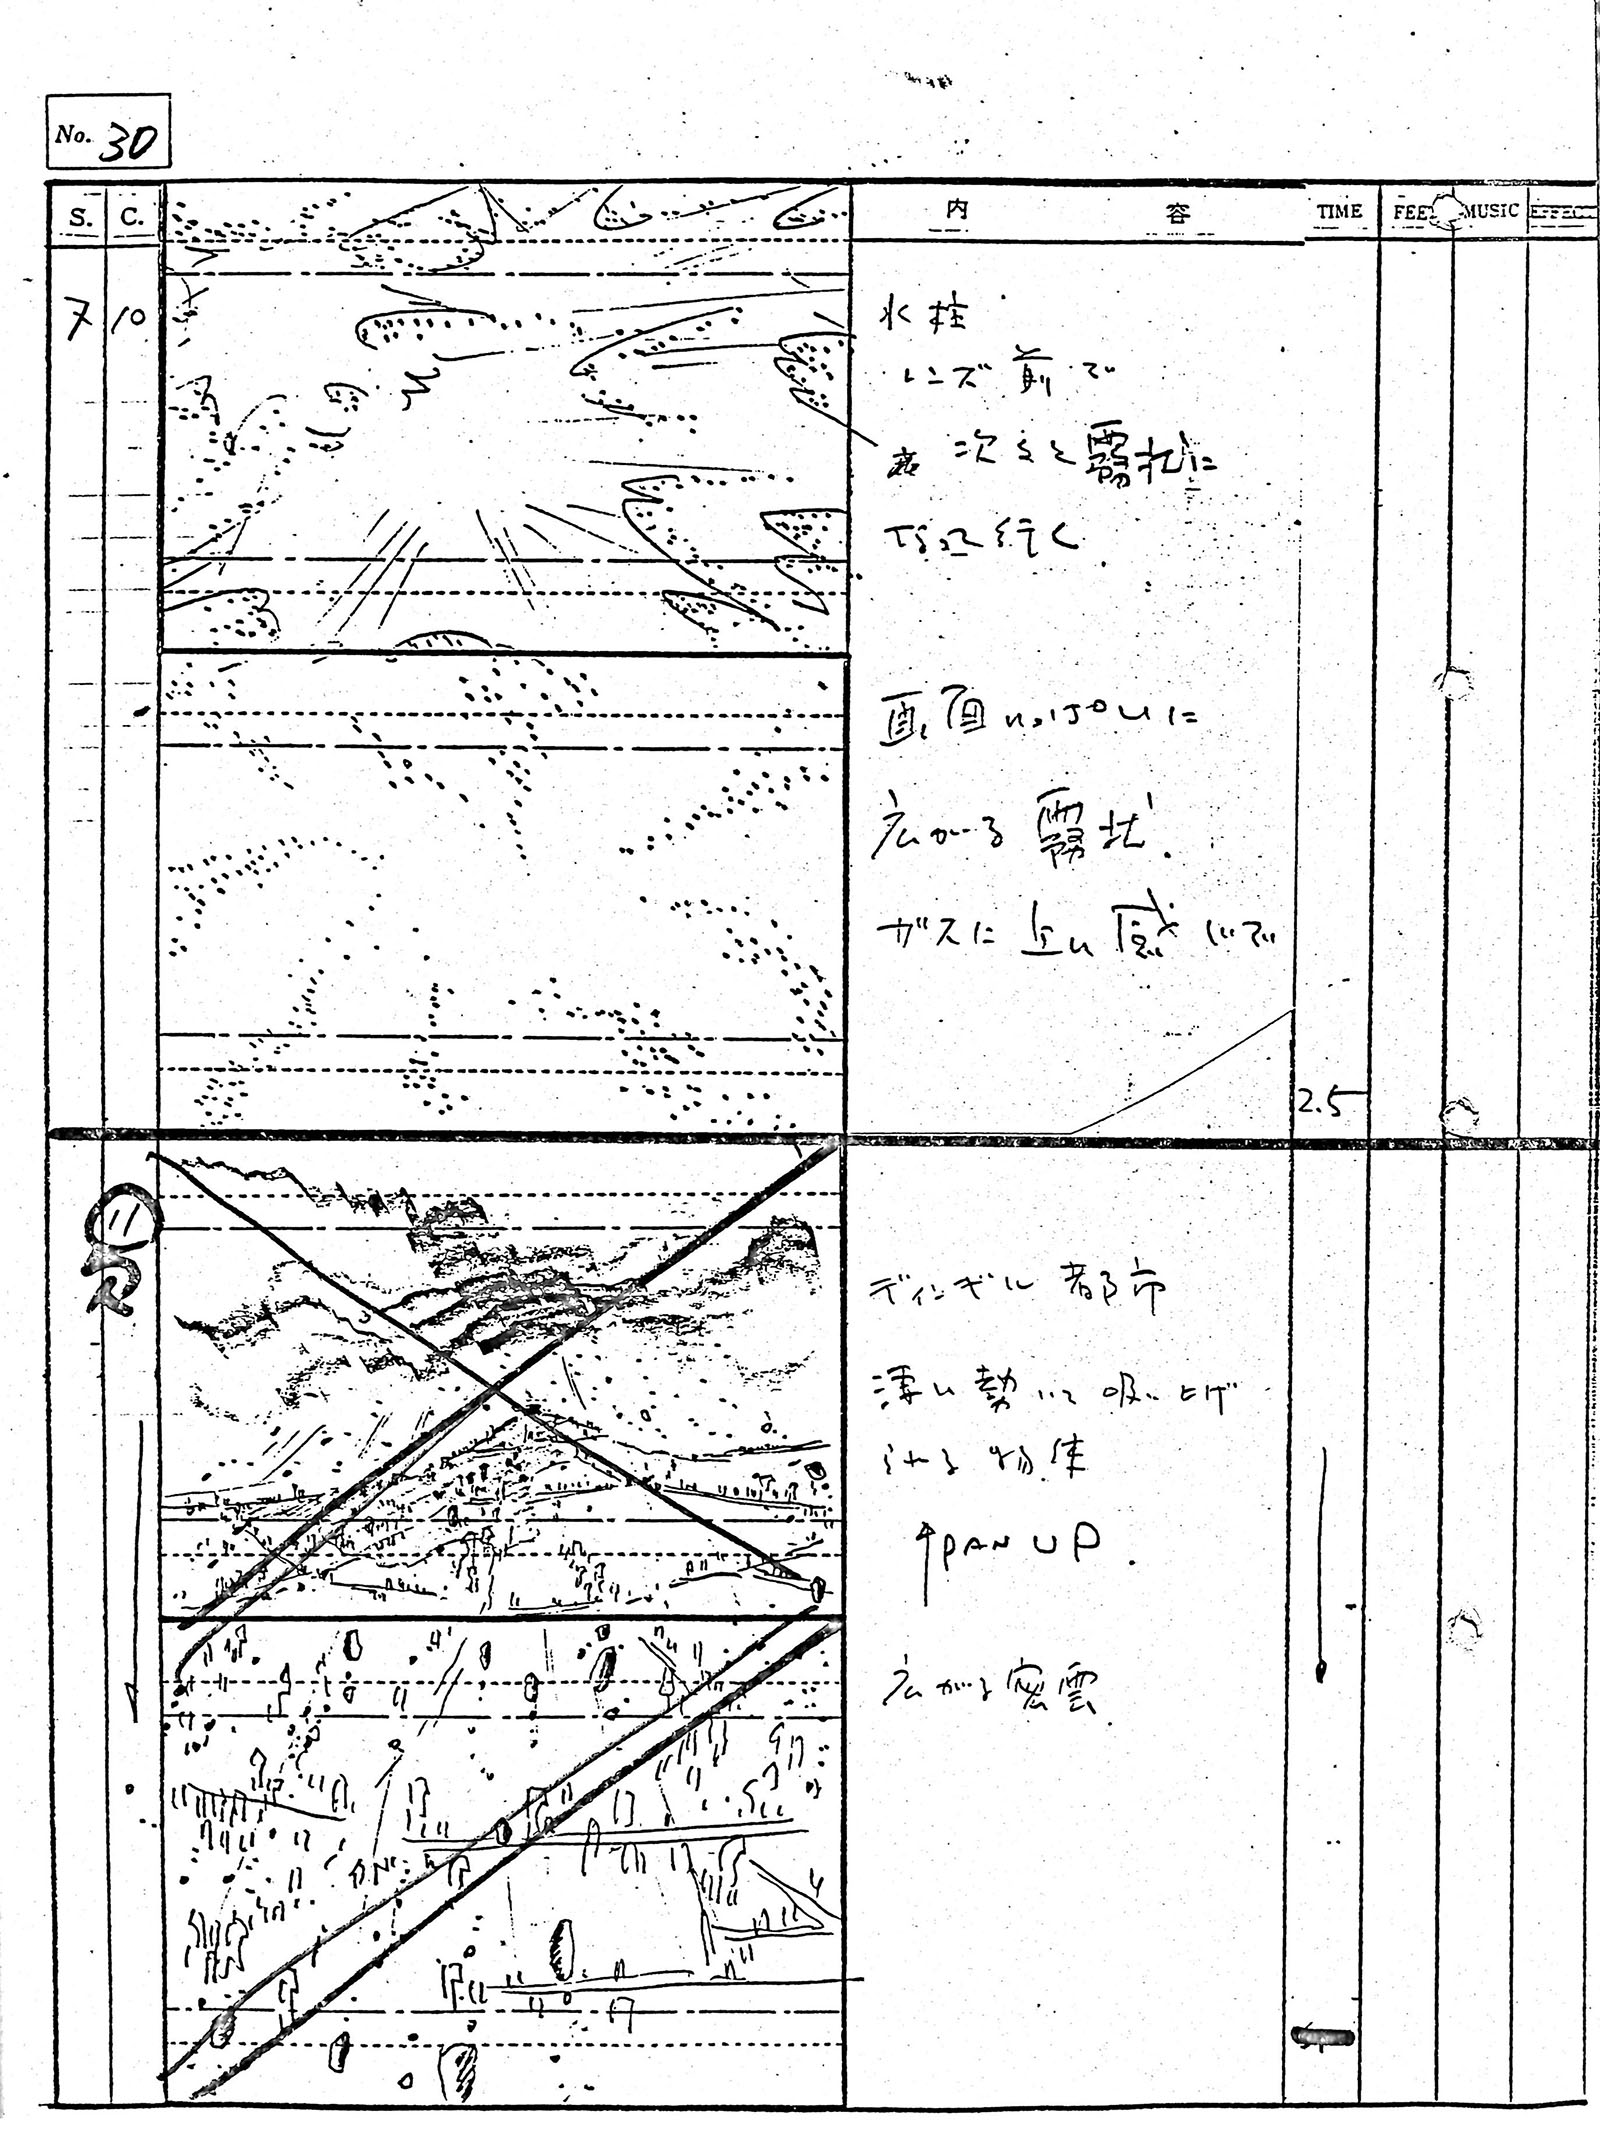 No. 30
S. C. 内 容 TIME FEET MUSIC EFFECT
7 10
水柱
レンズ前で
次々と霧状に
なって行く
画面いっぱいに
広がる霧状
ガスに近い感じで
2.5
11
欠
ディンギル都市
凄い勢いで吸い上げ
られる物体
↑PAN UP.
広がる密雲